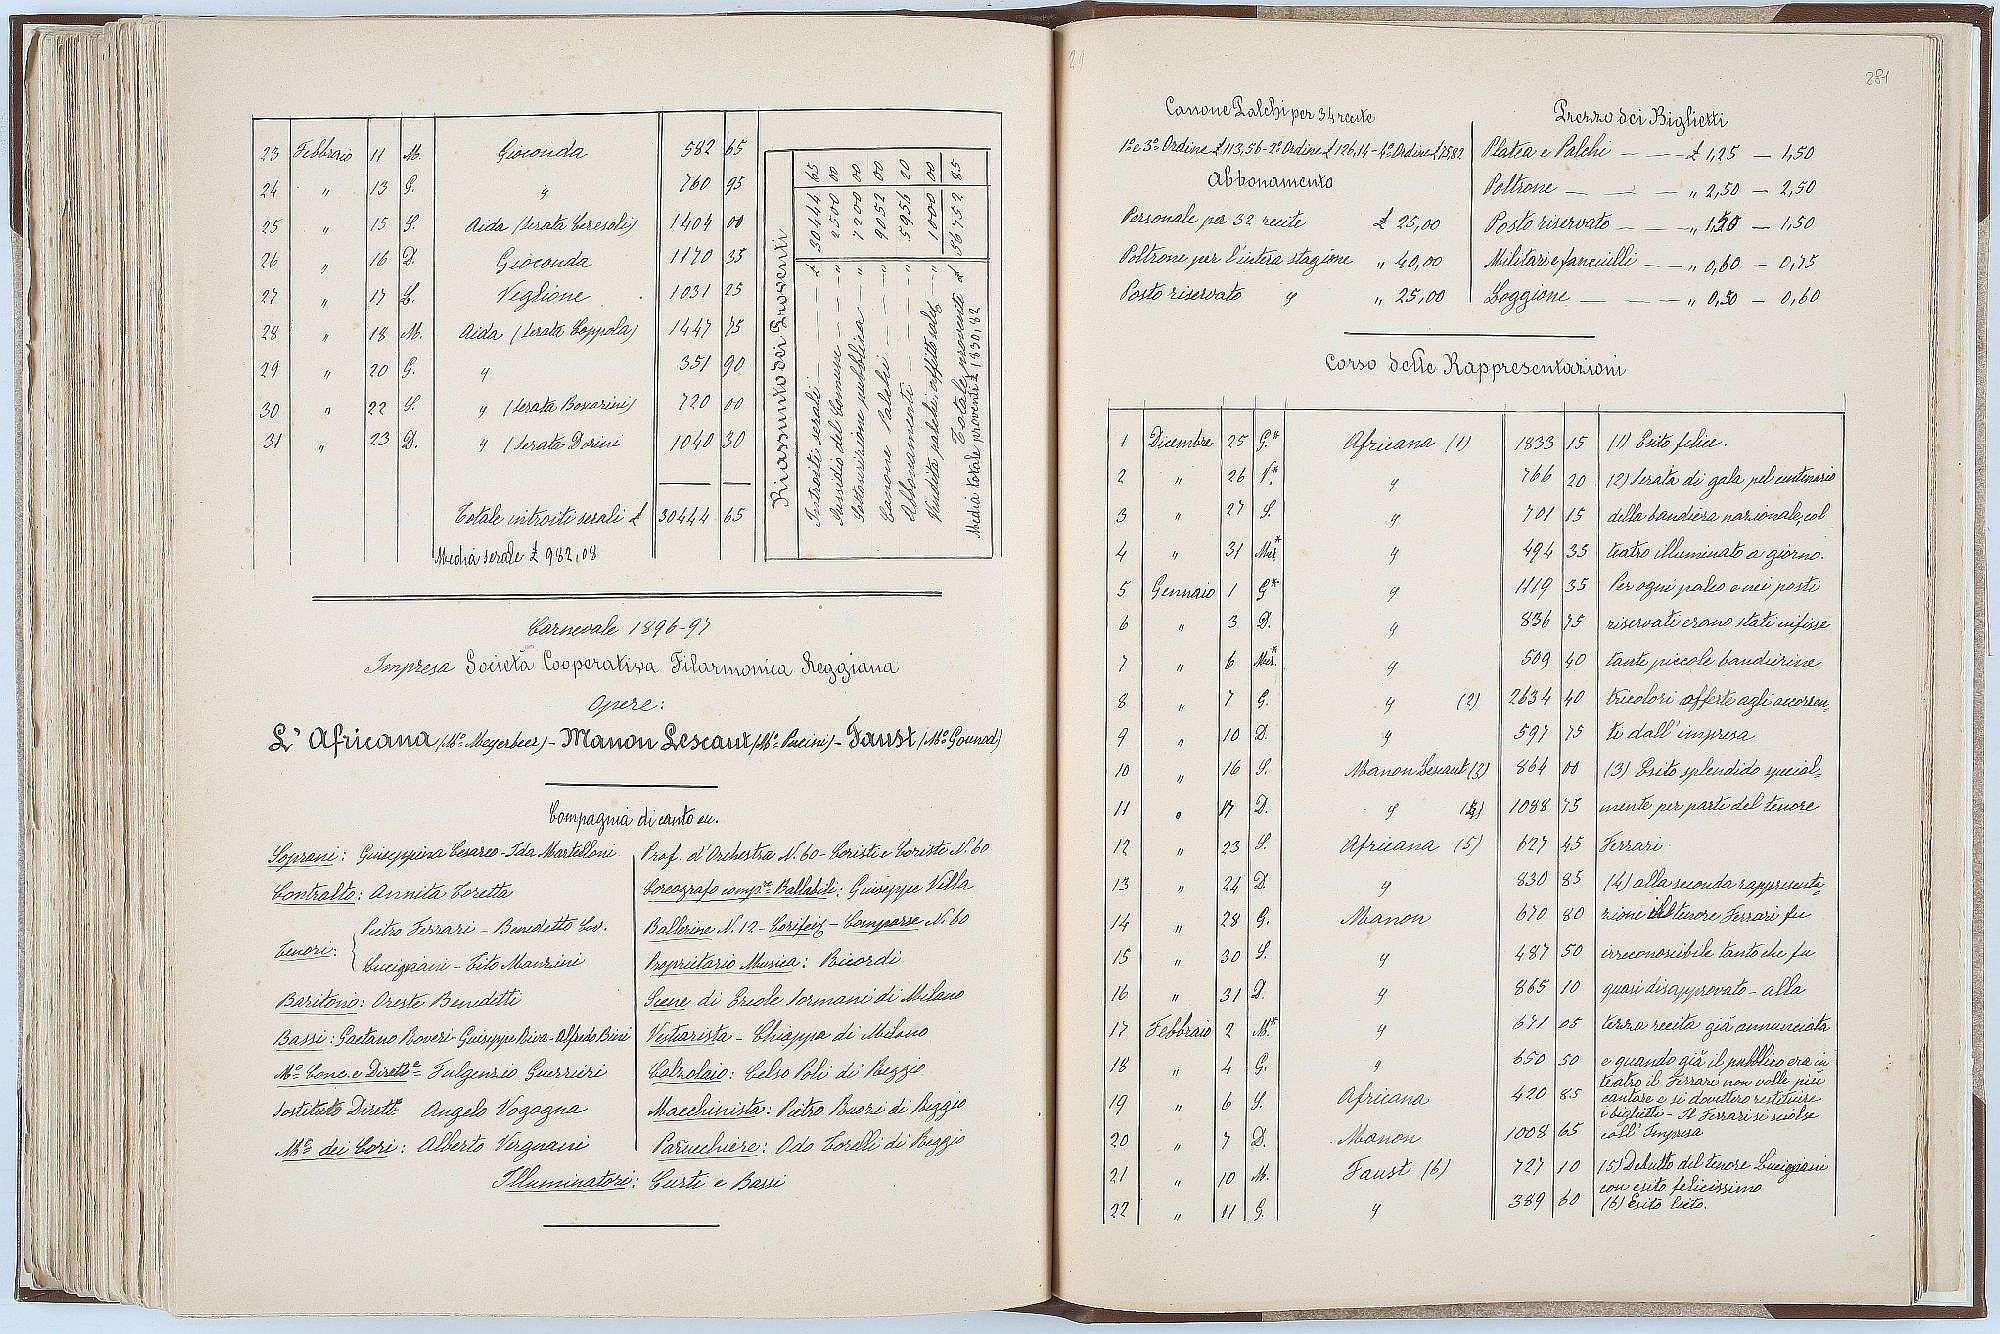 23 Febbraio 11 M. Gioconda 582 65
24 " 13 G. " 760 95
25 " 15 S. Aida (serata Ceresoli) 1404 00
26 " 16 D. Gioconda 1170 35
27 " 17 L. Veglione 1031 25
28 " 18 M. Aida (serata Coppola) 1447 75
29 " 20 G. " 351 90
30 " 22 S. " (serata Bonarini) 720 00
31 " 23 D. " (serata Dorini 1040 30
Totale introiti serali £ 30444 65
Media serale £ 982,08
Riassunto dei Proventi
Introiti serali — £ 30444 65
Sussidio del Comune — " 2500 00
Sottoscrizione pubblica — " 7200 00
Canone Palchi — " 9652 00
Abbonamenti — " 5956 20
Vendita palchi, affitto caffè — " 1000 00
Totale proventi £ 56752 85
Media totale proventi £ 1830,82
Carnevale 1896-97
Impresa Società Cooperativa Filarmonica Reggiana
Opere:
L' Africana (Mº Meyerbeer) - Manon Lescaut (Mº Puccini) - Faust (Mº Gounod)
Compagnia di canto ecc.
Soprani: Guiseppina Cesareo - Ida Martelloni
Contralto: Annita Toretta
Tenori: Pietro Ferrari - Benedetto Cav.
Lucignani - Tito Manzini
Baritono: Oreste Benedetti
Bassi: Gaetano Roveri - Guiseppe Riva - Alfredo Bini
Mº Conc. e Dirett.e Fulgenzio Guerrieri
Sostituto Dirett.e Angelo Vogagna
Mº dei Cori: Alberto Vergnani
Prof. d'Orchestra N. 60 - Coristi e Coriste N. 60
Coreografo comp.re Ballabili: Giuseppe Villa
Ballerine N. 12 - Corifei - Comparse N. 60
Proprietario Musica: Ricordi
Scene di Ercole Sormani di Milano
Vestiarista - Chiappa di Milano
Calzolaio: Celso Poli di Reggio
Macchinista: Pietro Buori di Reggio
Parucchiere: Odo Torelli di Reggio
Illuminatori: Curti e Bassi
281
Canone Palchi per 34 recite
1º e 3º Ordine £ 113,56 - 2º Ordine £ 126,14 - 4º Ordine £ 75,82
Abbonamento
Personale per 32 recite £ 25,00
Poltrone per l'intera stagione " 40,00
Posto riservato " " 25,00
Prezzo dei Biglietti
Platea e Palchi — £ 1,25 — 1,50
Poltrone — " 2,50 — 2,50
Posto riservato — " 1,50 — 1,50
Militari e fanciulli — " 0,60 — 0,75
Loggione — " 0,50 — 0,60
Corso delle Rappresentazioni
1 Dicembre 25 G.* Africana (1) 1833 15 (1) Esito felice.
2 " 26 V.* " 766 20 (2) Serata di gala pel centenario
3 " 27 S. " 701 15 della bandiera nazionale, col
4 " 31 Mer.* " 494 35 teatro illuminato a giorno.
5 Gennaio 1 G* " 1119 35 Per ogni palco e nei posti
6 " 3 D. " 836 75 riservati erano stati infisse
7 " 6 Mer.* " 509 40 tante piccole bandierine
8 " 7 G. " (2) 2634 40 tricolori offerte agli accorren,
9 " 10 D. " 597 75 ti dall'impresa
10 " 16 S. Manon Lescaut (3) 864 00 (3) Esito splendido special,
11 " 17 D. " (4) 1088 75 mente per parte del tenore
12 " 23 S. Africana (5) 627 45 Ferrari.
13 " 24 D. " 830 85 (4) alla seconda rappresenta,
14 " 28 G. Manon 670 80 zione il tenore Ferrari fu
15 " 30 S. " 487 50 irreconoscibile tanto che fu
16 " 31 D. " 865 10 quasi disapprovato - alla
17 Febbraio 2 M.* " 671 05 terza recita già annunciata
18 " 4 G. " 650 50 e quando già il pubblico era in
teatro il Ferrari non volle più
19 " 6 S. Africana 420 85 cantare e si dovettero restituire
i biglietti - Il Ferrari si sciolse
20 " 7 D. Manon 1008 65 coll' Impresa
21 " 10 M. Faust (6) 727 10 (5) Debutto del tenore Lucignani
con esito felicissimo
22 " 11 G. " 389 60 (6) Esito lieto.